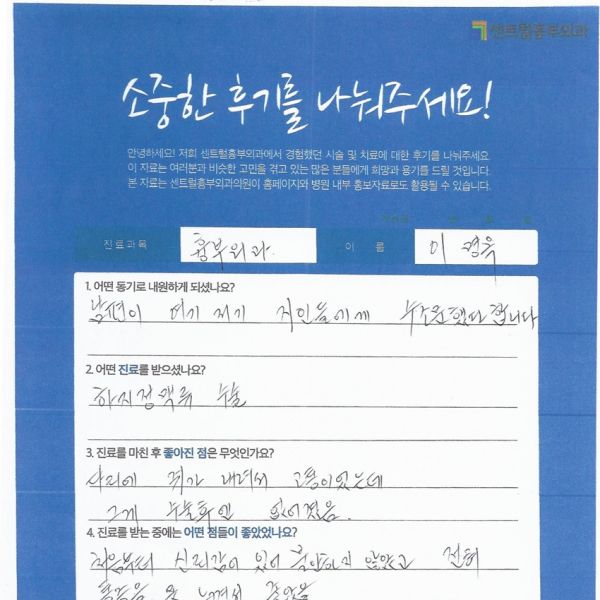 센트럴흉부외과
소중한 후기를 나눠주세요!
안녕하세요! 저희 센트럴흉부외과에서 경험했던 시술 및 치료에 대한 후기를 나눠주세요
이 자료는 여러분과 비슷한 고민을 겪고 있는 많은 분들에게 희망과 용기를 드릴 것입니다.
본 자료는 센트럴흉부외과의원이 홈페이지와 병원 내부 홍보자료로도 활용될 수 있습니다.
진료과목 흉부외과 이 름 이 경욱
1. 어떤 동기로 내원하게 되셨나요?
남편이 여기 저기 지인들에게 수소문했다 합니다
2. 어떤 진료를 받으셨나요?
하지정맥류 수술
3. 진료를 마친 후 좋아진 점은 무엇인가요?
다리에 쥐가 내려서 고통이었는데
그게 수술후엔 없어졌음.
4. 진료를 받는 중에는 어떤 점들이 좋았었나요?
처음부터 신뢰감이 있어 불안하지 않았고 전혀
통증을 못 느껴서 좋았음